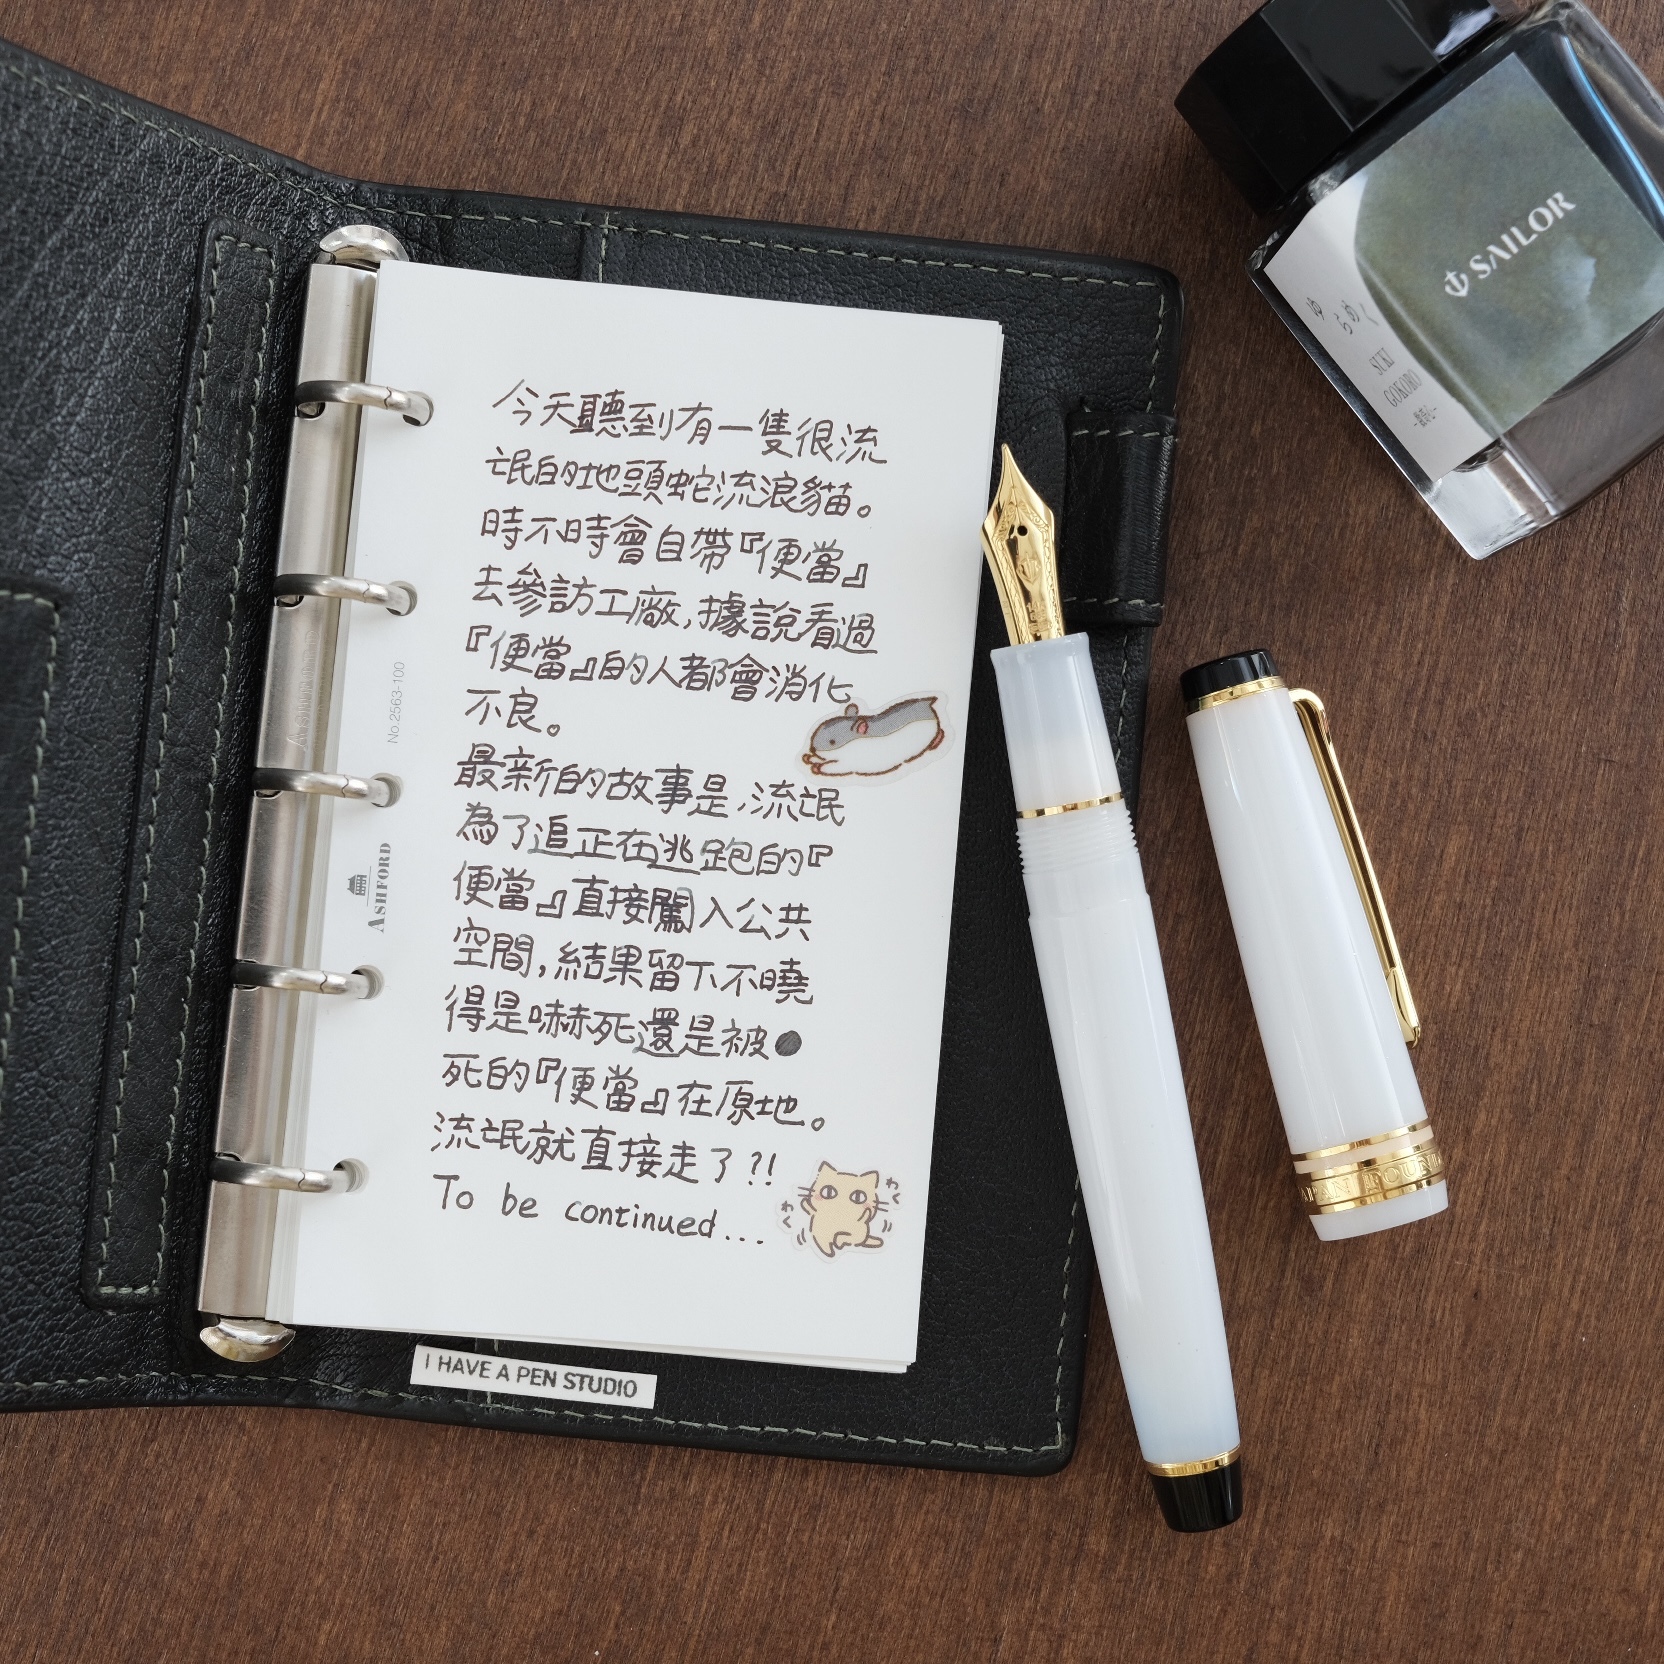 今天聽到有一隻很流
氓的地頭蛇流浪貓。
時不時會自帶『便當』
去參訪工廠,據說看過
『便當』的人都會消化
不良。
最新的故事是,流氓
為了追正在逃跑的『
便當』直接闖入公共
空間,結果留下不曉
得是嚇死還是被●
死的『便當』在原地。
流氓就直接走了?!
To be continued...
わく
わく
No.2563-100
ASHFORD
I HAVE A PEN STUDIO
SAILOR
ゆらめく
SUKI
GOKORO
JAPAN FOUN